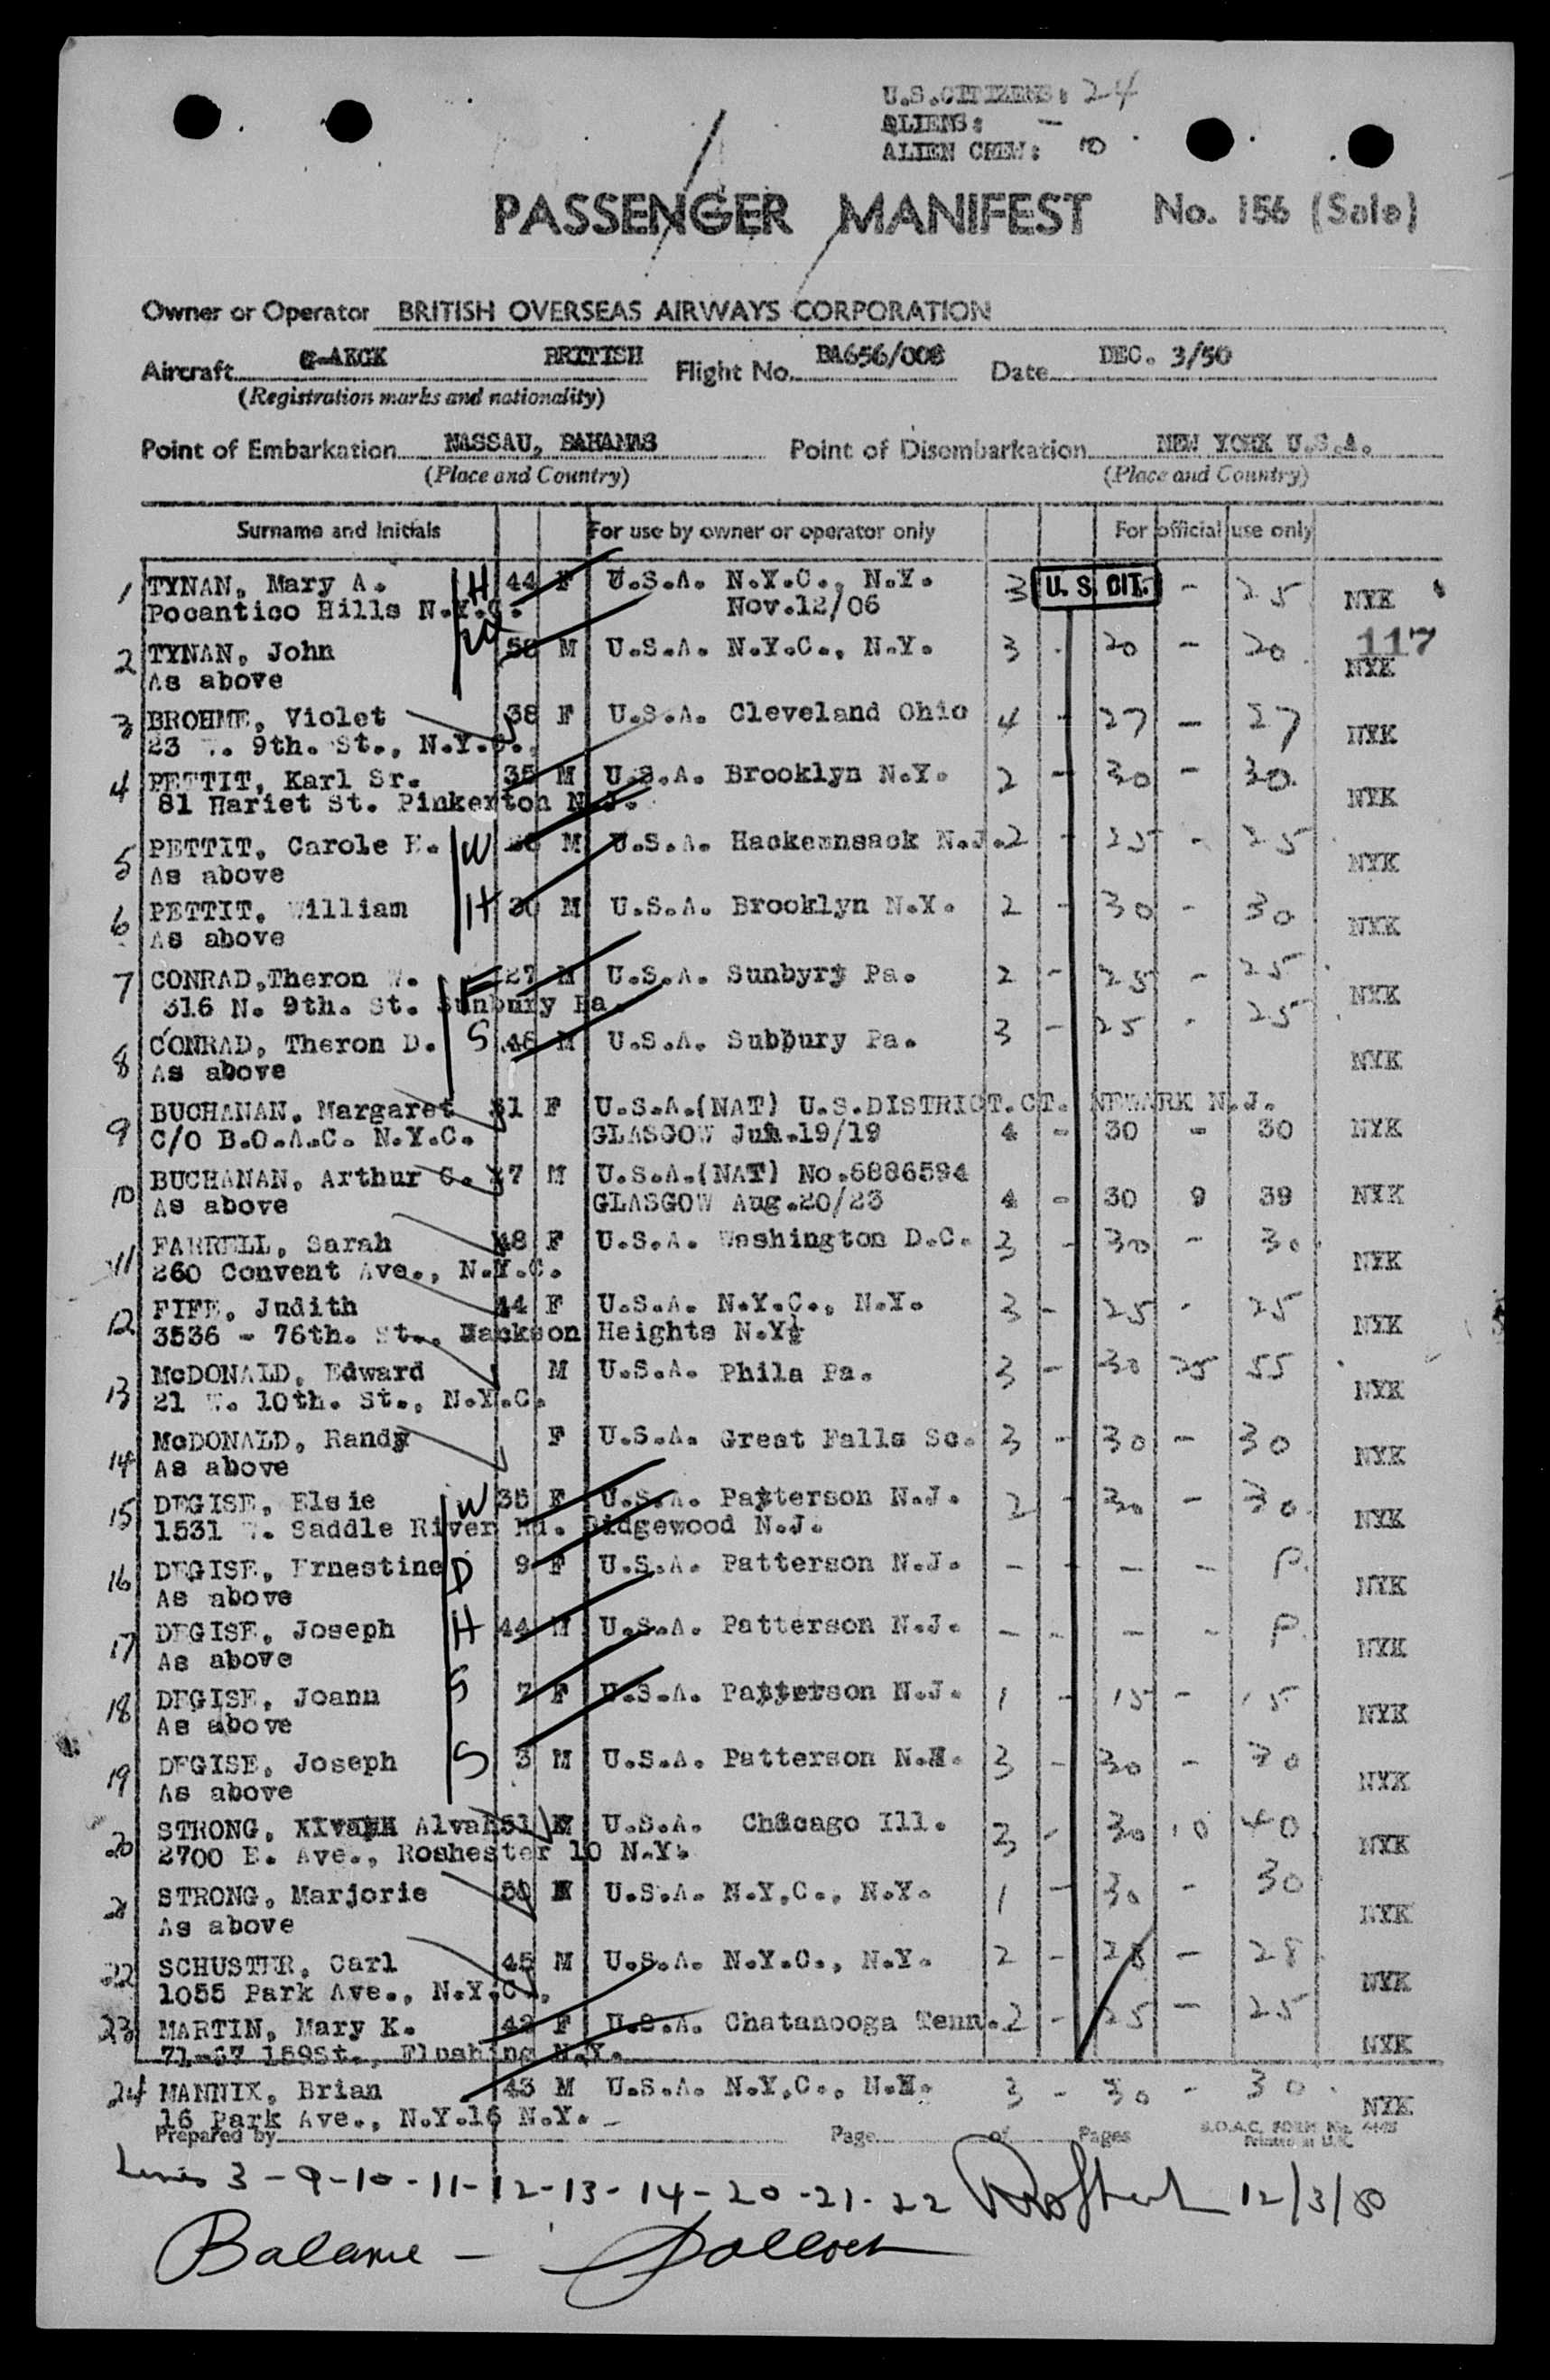 U.S.CITIZENS: 24
QLIENS: -
ALIEN CREW: 10
PASSENGER MANIFEST No. 156 (Sale)
Owner or Operator BRITISH OVERSEAS AIRWAYS CORPORATION
Aircraft G-AKCK BRITISH Flight No. BA656/008 Date DEC. 3/50
(Registration marks and nationality)
Point of Embarkation NASSAU, BAHAMAS Point of Disembarkation NEW YORK U.S.A.
(Place and Country) (Place and Country)
Surname and Initials For use by owner or operator only For official use only
1 TYNAN, Mary A. H 44 F U.S.A. N.Y.C., N.Y. 3 U. S. CIT. - 25 NYK
Pocantico Hills N.Y.C. Nov.12/06
117
2 TYNAN, John 58 M U.S.A. N.Y.C., N.Y. 3 - 20 - 20 NYK
As above
3 BROHME, Violet 38 F U.S.A. Cleveland Ohio 4 - 27 - 27 NYK
23 W. 9th. St., N.Y.C.
4 PETTIT, Karl Sr. 35 M U.S.A. Brooklyn N.Y. 2 - 30 - 30 NYK
81 Hariet St. Pinkerton N.J.
5 PETTIT, Carole E. W M U.S.A. Hackemnsack N.J. 2 - 25 - 25 NYK
As above
6 PETTIT, William H 30 M U.S.A. Brooklyn N.Y. 2 - 30 - 30 NYK
As above
7 CONRAD,Theron W. F 27 M U.S.A. Sunbyry Pa. 2 - 25 - 25 NYK
316 N. 9th. St. Sunbury Pa.
8 CONRAD, Theron D. S 46 M U.S.A. Subbury Pa. 3 - 25 - 25 NYK
As above
9 BUCHANAN, Margaret 31 F U.S.A.(NAT) U.S.DISTRICT.CT. NEWARK N.J.
C/O B.O.A.C. N.Y.C. GLASGOW Jun.19/19 4 - 30 - 30 NYK
10 BUCHANAN, Arthur C. 27 M U.S.A.(NAT) No.6886594
As above GLASGOW Aug.20/23 4 - 30 9 39 NYK
11 FARRELL, Sarah 48 F U.S.A. Washington D.C. 3 - 30 - 30 NYK
260 Convent Ave., N.Y.C.
12 FIFE, Judith 44 F U.S.A. N.Y.C., N.Y. 3 - 25 - 25 NYK
3536 - 76th. St., Jackson Heights N.Y.
13 McDONALD, Edward M U.S.A. Phila Pa. 3 - 30 25 55 NYK
21 W. 10th. St., N.Y.C.
14 McDONALD, Randy F U.S.A. Great Falls Sc. 3 - 30 - 30 NYK
As above
15 DEGISE, Elsie W 35 F U.S.A. Patterson N.J. 2 - 30 - 30 NYK
1531 W. Saddle River Rd. Ridgewood N.J.
16 DEGISE, Ernestine D 9 F U.S.A. Patterson N.J. - - - - P. NYK
As above
17 DEGISE, Joseph H 44 M U.S.A. Patterson N.J. - - - - P. NYK
As above
18 DEGISE, Joann S 7 F U.S.A. Patterson N.J. 1 - 15 - 15 NYK
As above
19 DEGISE, Joseph S 3 M U.S.A. Patterson N.J. 3 - 30 - 30 NYK
As above
20 STRONG, Alvah 51 M U.S.A. Chicago Ill. 3 - 30 10 40 NYK
2700 E. Ave., Roshester 10 N.Y.
21 STRONG, Marjorie 50 U.S.A. N.Y,C., N.Y. 1 - 30 - 30 NYK
As above
22 SCHUSTER, Carl 45 M U.S.A. N.Y.C., N.Y. 2 - 28 - 28 NYK
1055 Park Ave., N.Y.C.,
23 MARTIN, Mary K. 42 F U.S.A. Chatanooga Tenn. 2 - 25 - 25 NYK
71-67 159St., Flushing N.Y.
24 MANNIX, Brian 43 M U.S.A. N.Y,C., N.Y. 3 - 30 - 30 NYK
16 Park Ave., N.Y.16 N.Y.
Prepared by Page of Pages B.O.A.C. FORM No.
Printed in U.K.
Lines 3-9-10-11-12-13-14-20-21-22 12/3/50
Balance - Pollock